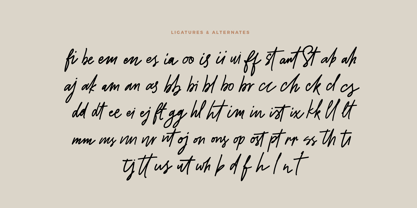 LIGATURES & ALTERNATES
fi be em en es ia oo is ii ui ff st ant St ab ah
aj ak am an as bb bi bl bo br cc ch ck d cs
dd dt ee ei ej ft gg hl ht im in ist ix kk ll lt
mm ms nn nr nt oj on ons op ost pt rr ss th ti
tj tt us ut wh b d f h l n t